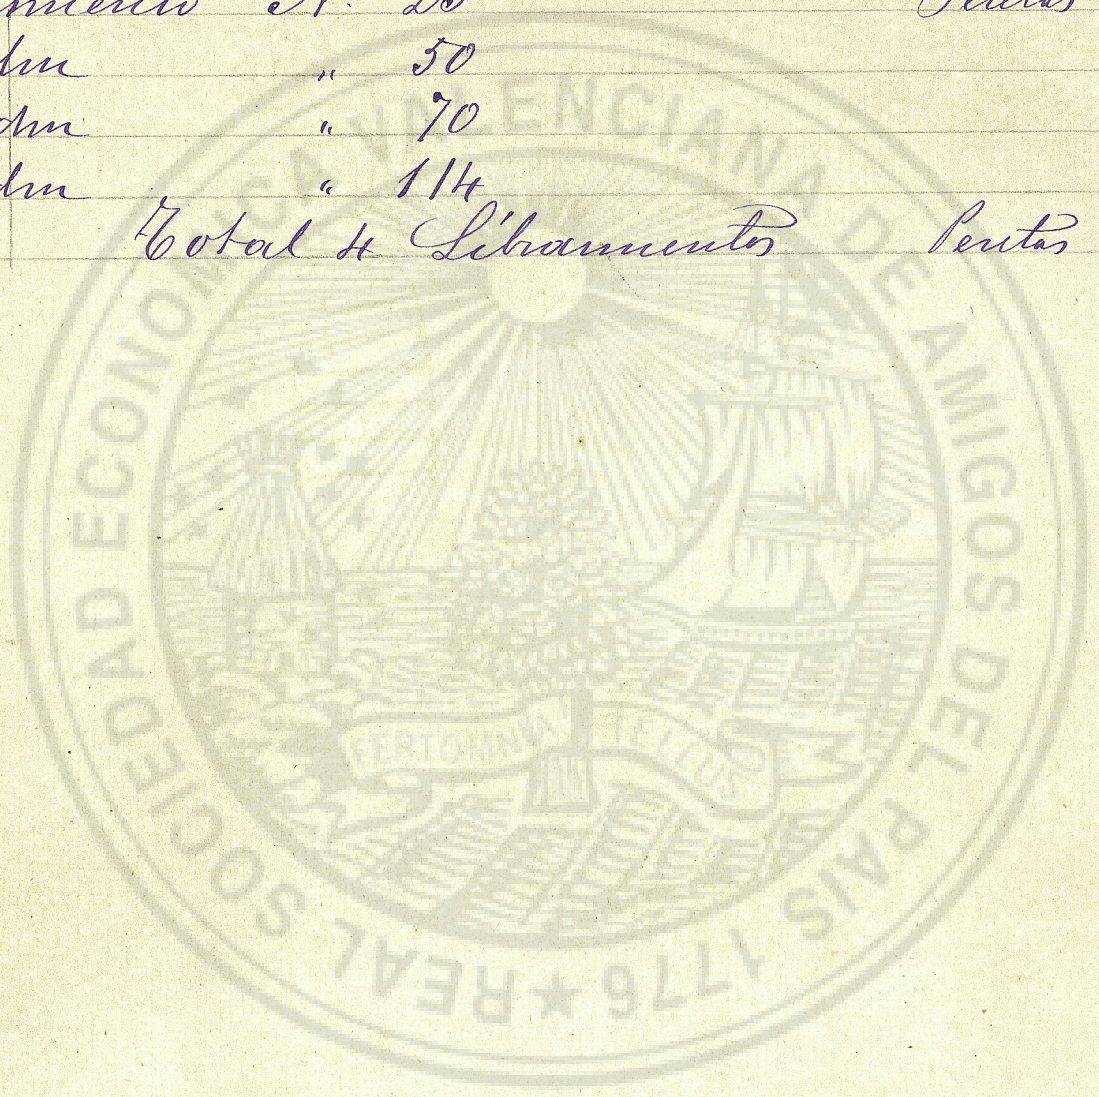 „ 50
„ 70
„ 114
Total 4 Libramientos Pesetas
REAL SOCIEDAD ECONOMICA VALENCIANA DE AMIGOS DEL PAIS 1776
FERTOMNIA TELLUS